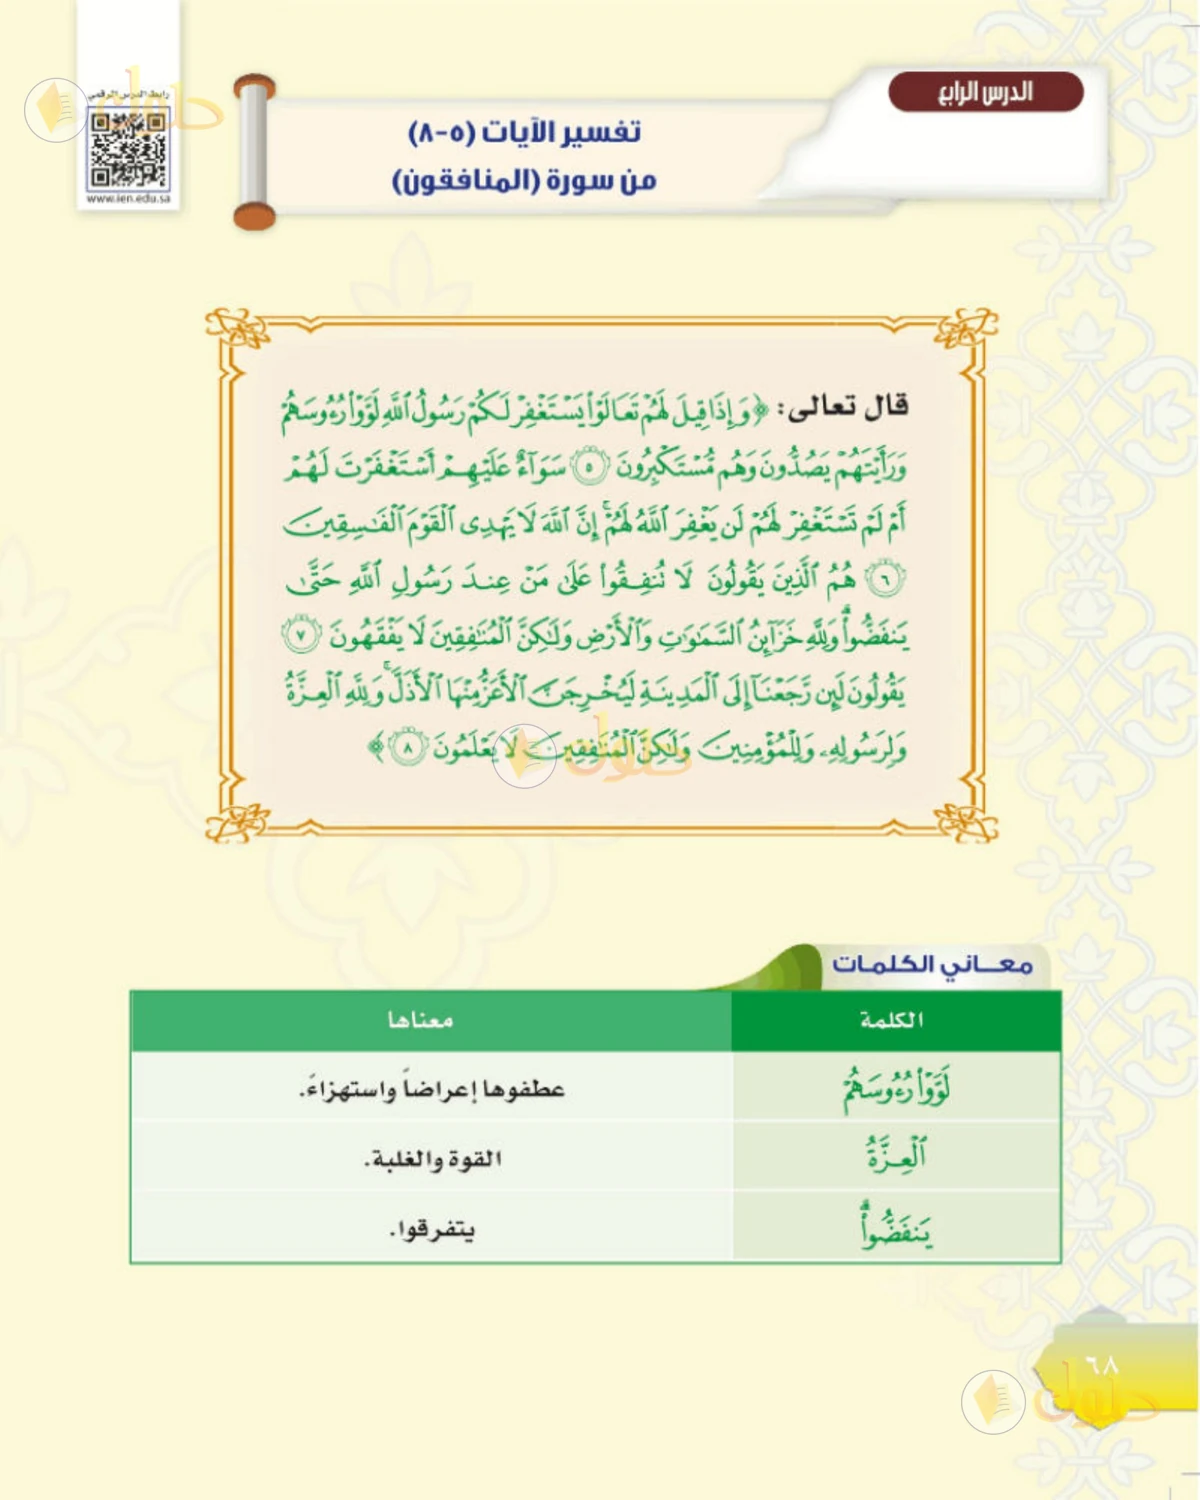 رابط الدرس الرقمي
www.ien.edu.sa
الدرس الرابع
تفسير الآيات (٥-٨)
من سورة (المنافقون)
قال تعالى: ﴿وَإِذَا قِيلَ لَهُمْ تَعَالَوْا۟ يَسْتَغْفِرْ لَكُمْ رَسُولُ ٱللَّهِ لَوَّوْا۟ رُءُوسَهُمْ
وَرَأَيْتَهُمْ يَصُدُّونَ وَهُم مُّسْتَكْبِرُونَ ٥ سَوَآءٌ عَلَيْهِمْ أَسْتَغْفَرْتَ لَهُمْ
أَمْ لَمْ تَسْتَغْفِرْ لَهُمْ لَن يَغْفِرَ ٱللَّهُ لَهُمْ ۚ إِنَّ ٱللَّهَ لَا يَهْدِى ٱلْقَوْمَ ٱلْفَـٰسِقِينَ
٦ هُمُ ٱلَّذِينَ يَقُولُونَ لَا تُنفِقُوا۟ عَلَىٰ مَنْ عِندَ رَسُولِ ٱللَّهِ حَتَّىٰ
يَنفَضُّوا۟ ۗ وَلِلَّهِ خَزَآئِنُ ٱلسَّمَـٰوَٰتِ وَٱلْأَرْضِ وَلَـٰكِنَّ ٱلْمُنَـٰفِقِينَ لَا يَفْقَهُونَ ٧
يَقُولُونَ لَئِن رَّجَعْنَآ إِلَى ٱلْمَدِينَةِ لَيُخْرِجَنَّ ٱلْأَعَزُّ مِنْهَا ٱلْأَذَلَّ ۚ وَلِلَّهِ ٱلْعِزَّةُ
وَلِرَسُولِهِۦ وَلِلْمُؤْمِنِينَ وَلَـٰكِنَّ ٱلْمُنَـٰفِقِينَ لَا يَعْلَمُونَ ٨﴾
حلول
معـــاني الكلمـات
الكلمة
معناها
لَوَّوْا۟ رُءُوسَهُمْ
عطفوها إعراضاً واستهزاءً.
ٱلْعِزَّةُ
القوة والغلبة.
يَنفَضُّوا۟ ۗ
يتفرقوا.
٦٨
حلول